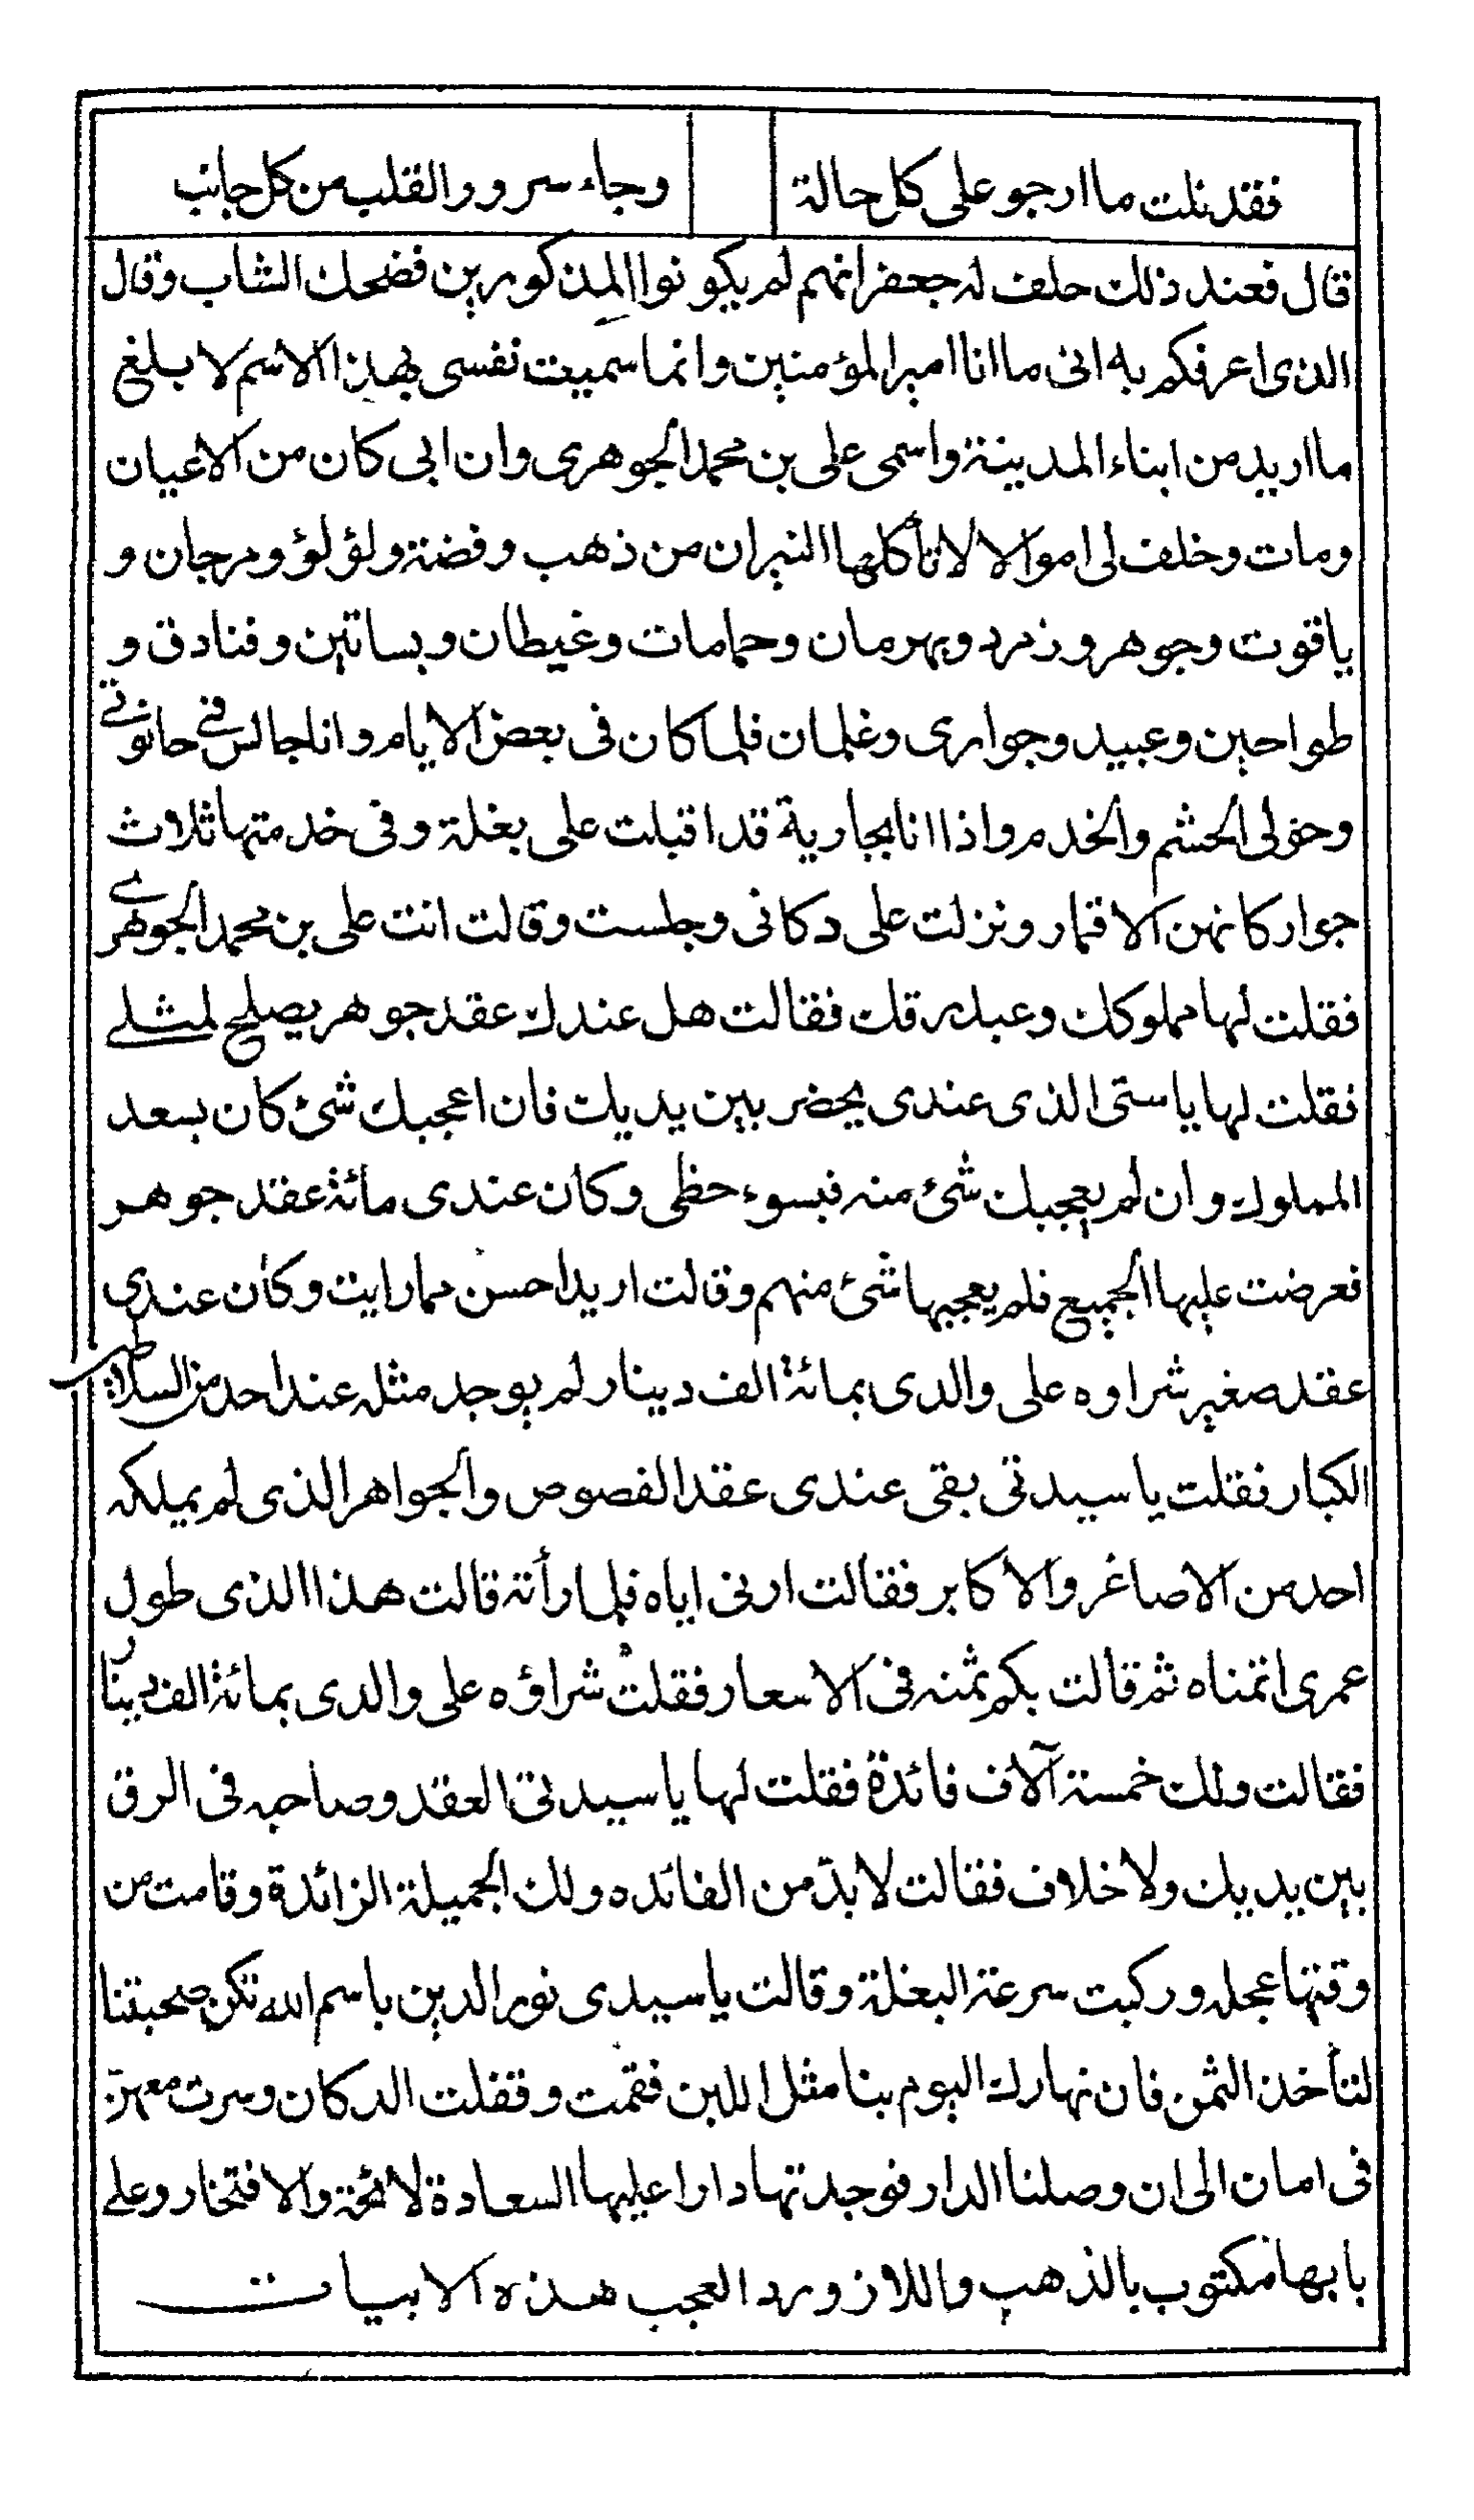 فقد نلت ما ارجو على كل حالة وجاء سرور القلب من كل جانب
قال فعند ذلك حلف له جعفر انهم لم يكونوا المذكورين فضحك الشاب وقال
الذى اعرفكم به انى ما انا امير المؤمنين وانما سميت نفسى بهذا الاسم لا بلغ
ما اريد من ابناء المدينة واسمى على بن محمد الجوهرى وان ابى كان من الاعيان
ومات وخلف لى اموالا لا تأكلها النيران من ذهب وفضة ولؤلؤ ومرجان و
ياقوت وجوهر وزمرد وبهرمان وحمامات وغيطان وبساتين وفنادق و
طواحين وعبيد وجوارى وغلمان فلما كان فى بعض الايام وانا جالس فى حانوتى
وحولى الحشم والخدم واذا انا بجارية قد اقبلت على بغلة وفى خدمتها ثلاث
جوار كانهن الاقمار ونزلت على دكانى وجلست وقالت انت على بن محمد الجوهرى
فقلت لها مملوكك وعبد رقك فقالت هل عندك عقد جوهر يصلح لمثلى
فقلت لها يا ستى الذى عندى يحضر بين يديك فان اعجبك شئ كان بسعد
المملوك وان لم يعجبك شئ منه فبسوء حظى وكان عندى مائة عقد جوهر
فعرضت عليها الجميع فلم يعجبها شئ منهم وقالت اريد احسن مما رايت وكان عندى
عقد صغير شراوه على والدى بمائة الف دينار لم يوجد مثله عند احد من السلاطين
الكبار فقلت يا سيدتى بقى عندى عقد الفصوص والجواهر الذى لم يملكه
احد من الاصاغر والاكابر فقالت ارنى اياه فلما رأته قالت هذا الذى طول
عمرى اتمناه ثم قالت بكم ثمنه فى الاسعار فقلت شراؤه على والدى بمائة الف دينار
فقالت ولك خمسة آلاف فائدة فقلت لها يا سيدتى العقد وصاحبه فى الرق
بين يديك ولا خلاف فقالت لا بدّ من الفائده ولك الجميلة الزائدة وقامت من
وقتها عجله وركبت سرعة البغلة وقالت يا سيدى نور الدين باسم الله تكن صحبتنا
لتأخذ الثمن فان نهارك اليوم بنا مثل اللبن فقمت وقفلت الدكان وسرت معهن
فى امان الى ان وصلنا الدار فوجدتها دارا عليها السعادة لائحة والافتخار وعلى
بابها مكتوب بالذهب واللازورد العجب هذه الابيات